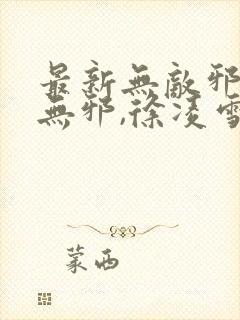 最新無敵邪
無邪,徐凌雪
蒙西